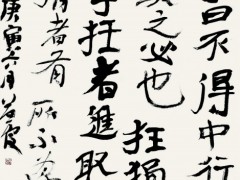 曰不得中行
與之必也狂狷
乎狂者進取
狷者有所不為
庚寅六月